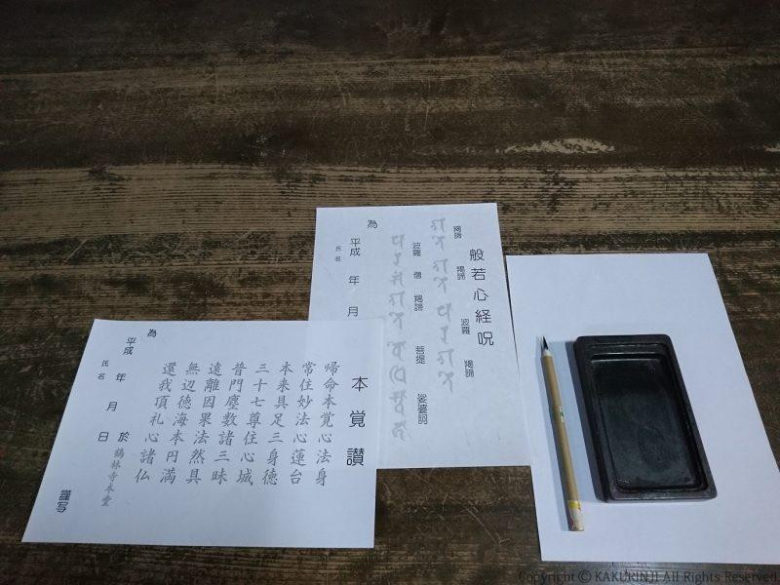 般若心経呪
羯諦 羯諦 波羅 羯諦
波羅 僧 羯諦 菩提 娑婆訶
為
平成 年 月
氏名
本覚讃
帰命本覚心法身
常住妙法心蓮台
本来具足三身徳
三十七尊住心城
普門塵数諸三昧
遠離因果法然具
無辺徳海本円満
還我頂礼心諸仏
為
平成 年 月 日
氏名
於 鶴林寺本堂
謹写
Copyright © KAKURINJI All Rights Reserved